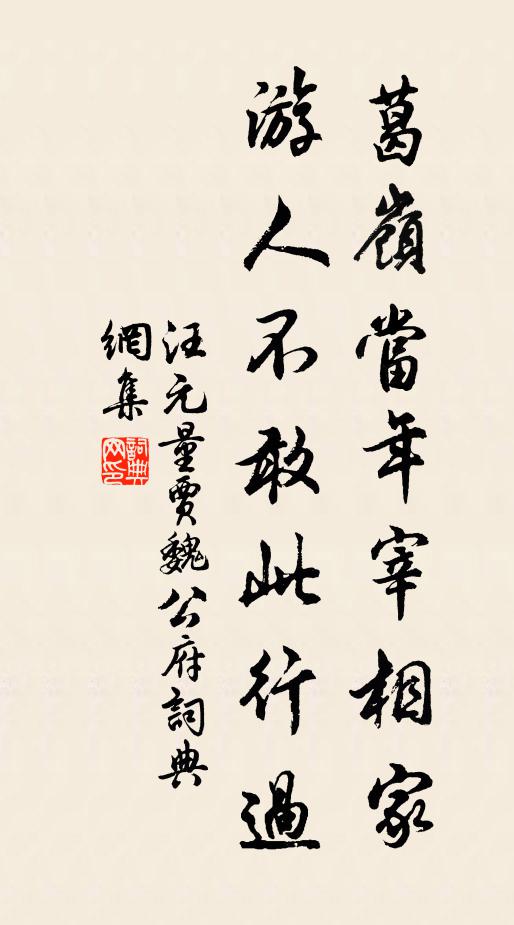 葛嶺當年宰相家
游人不敢此行過
汪元量賈魏公府詞典
網集
詞典网印